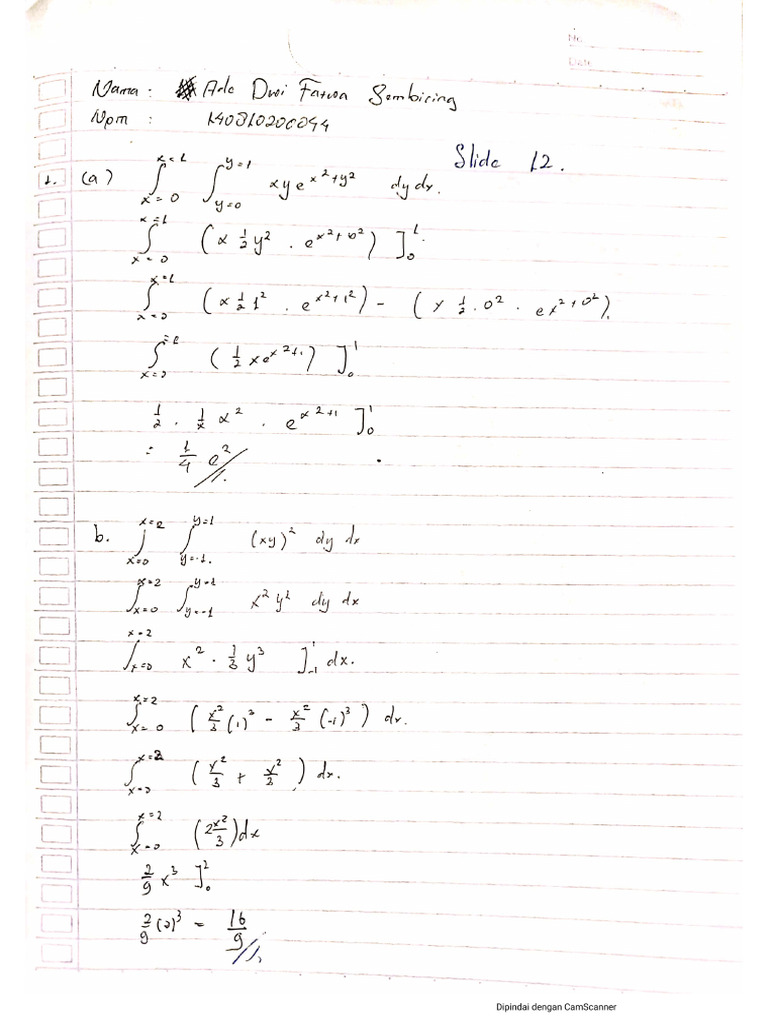 No.
Date
Nama : Ade Dwi Fatwa Sembiring
Npm : 140310200044
Slide 12.
1. (a) ∫_{x=0}^{x=1} ∫_{y=0}^{y=1} xy e^{x²+y²} dy dx.
∫_{x=0}^{x=1} (x ½ y² . e^{x²+y²}) ]_0^1.
∫_{x=0}^{x=1} (x ½ 1² . e^{x²+1²}) - (x ½ . 0² . e^{x²+0²}).
∫_{x=0}^{=1} (½ x e^{x²+1}) ]_0^1
½ . ½ x² . e^{x²+1} ]_0^1
= ¼ e² //.
b. ∫_{x=0}^{x=2} ∫_{y=-1.}^{y=1} (xy)² dy dx
∫_{x=0}^{x=2} ∫_{y=-1}^{y=1} x² y² dy dx
∫_{x=0}^{x=2} x² . ⅓ y³ ]_{-1}^1 dx.
∫_{x=0}^{x=2} (x²/3 (1)³ - x²/3 (-1)³) dx.
∫_{x=0}^{x=2} (x²/3 + x²/3) dx.
∫_{x=0}^{x=2} (2x²/3) dx
2/9 x³ ]_0^2
2/9 (2)³ = 16/9 //.
Dipindai dengan CamScanner